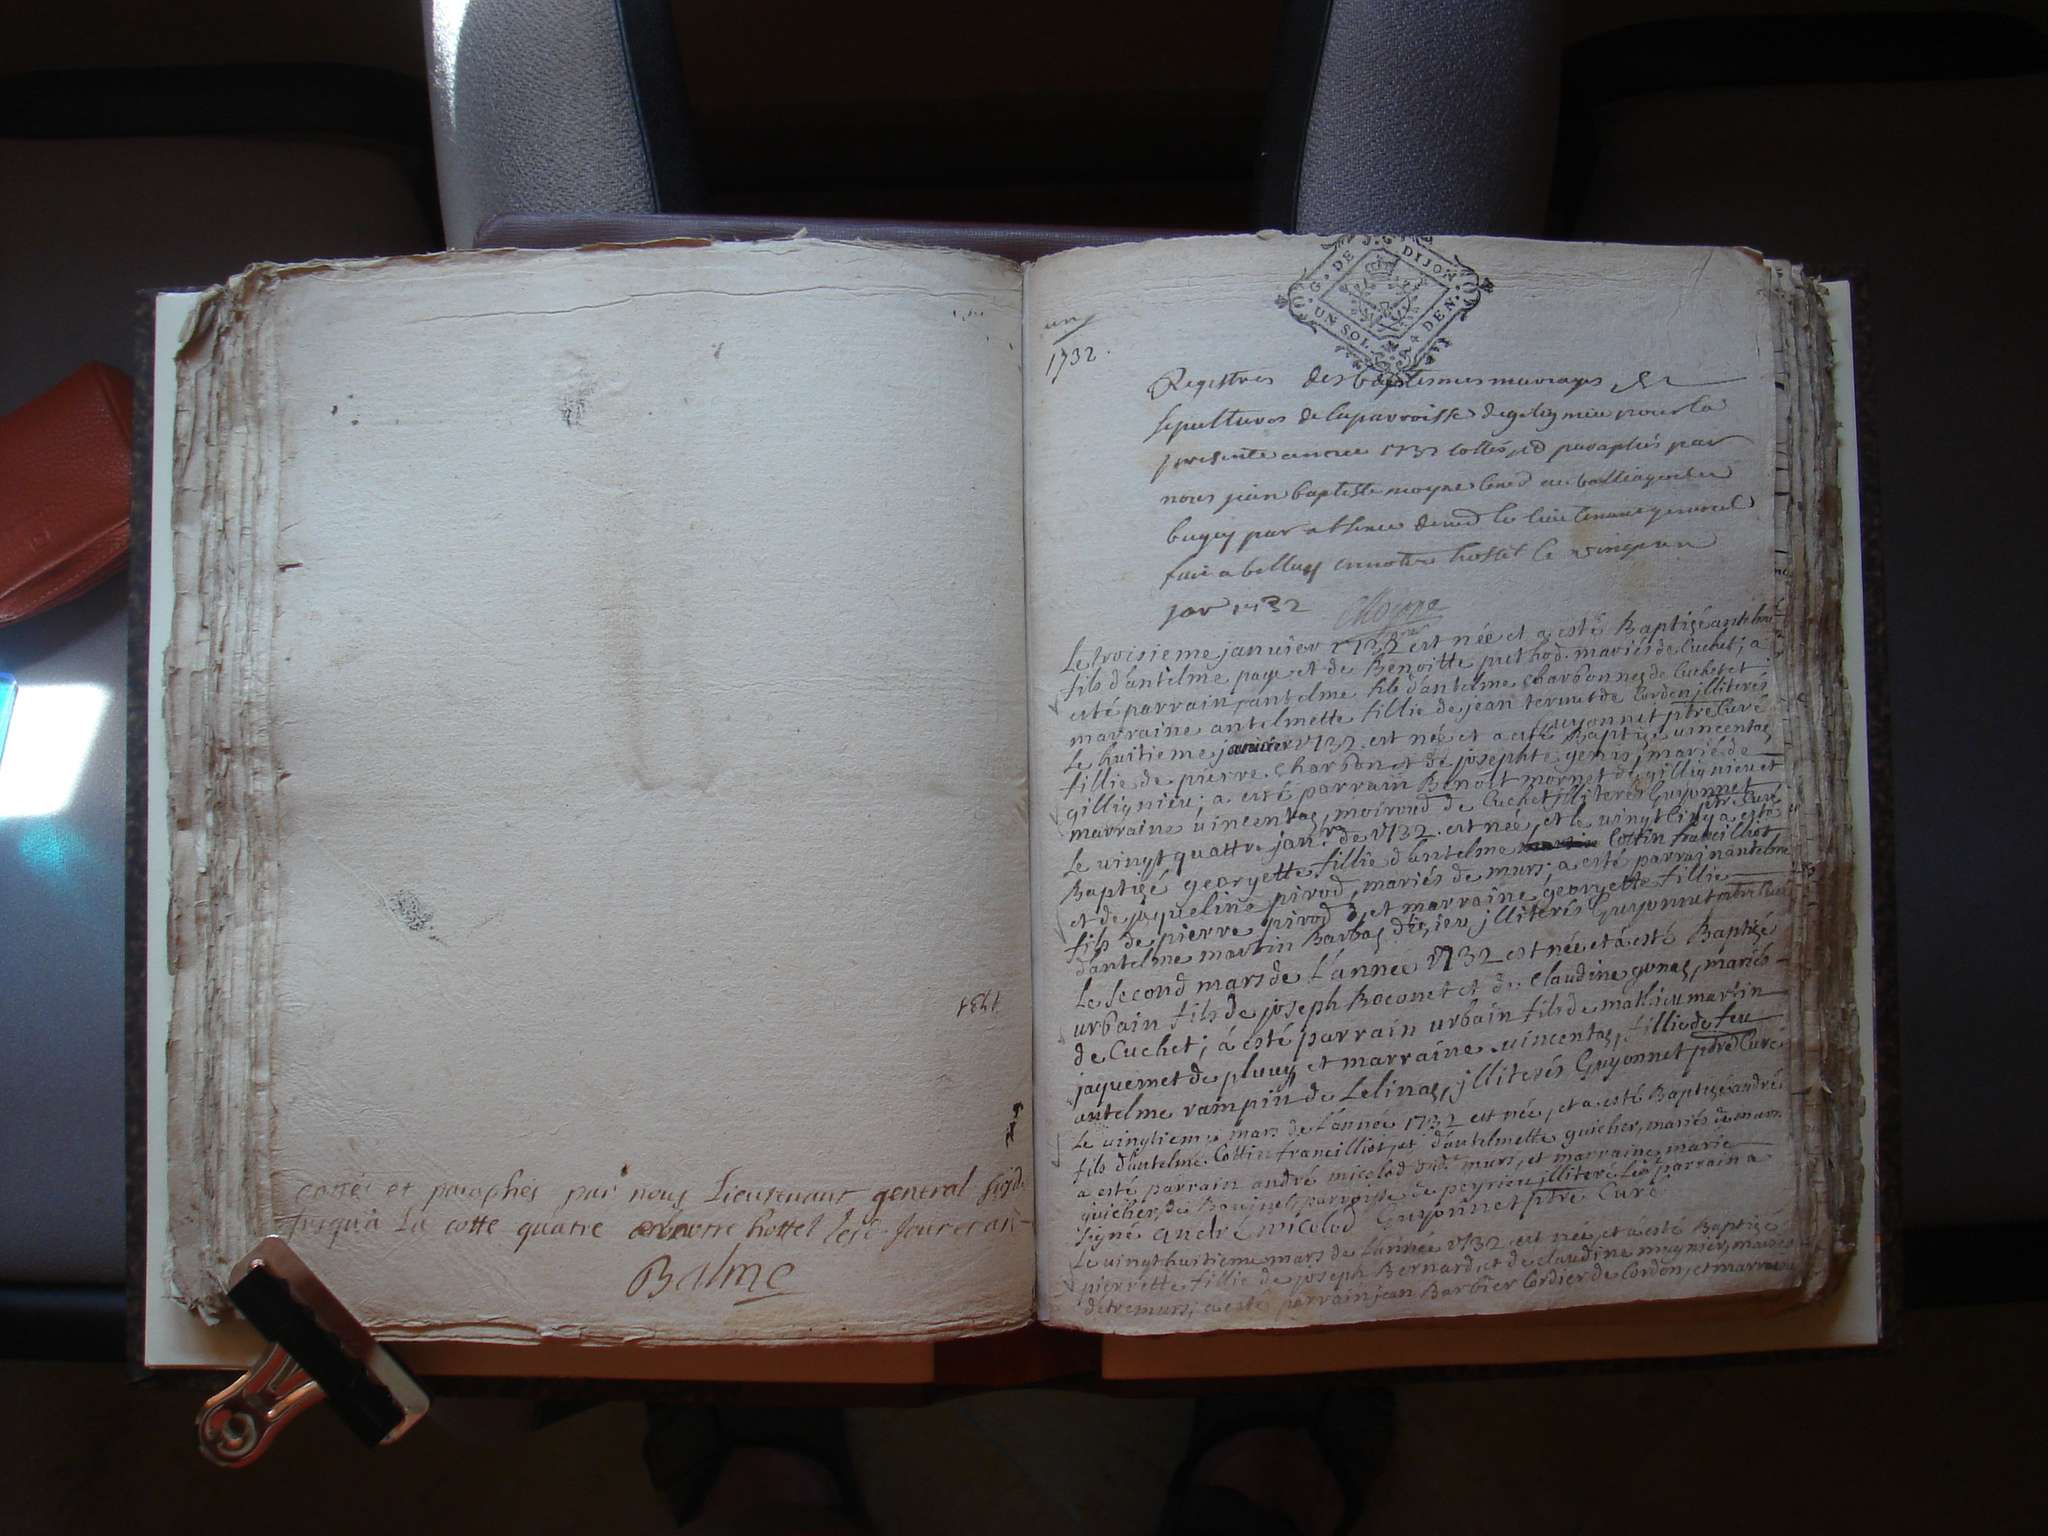 1731
cottés et paraphés par nous Lieutenant general susd.
jusqu'à La cotte quatre en notre hottel lesd. Jour et an
Balme
G. DE DIJON
UN SOL
DEN.
un
1732.
Registres des baptesmes mariages &
sepultures de la parroisse de gelignieu pour la
presente année 1732 cottés et paraphés par
nous jean baptiste moyne au balliage de
bugey par absence de le lieutenant general
fait a belley en notre hostel le
jar 1732 Moyne
Le troisieme janvier 1732 est née et a esté Baptizé antelme
fils d'antelme page et de Benoitte prethod mariés de Cuchet; a
esté parrain antelme fils d'antelme Charbonnes de Cuchet et
marraine antelmette fillie de jean ternet de Cordon jlliterés
Guyonnet ptre Curé
Le huitieme janvier 1732 est née et a esté Baptizé vincentaz
fillie de pierre Charbon et de josephte genis, mariés de
gillignieu; a esté parrain Benoit mornet de gillignieu et
marraine vincentaz moiroud de Cuchet jlliterés Guyonnet
ptre Curé
Le vingt quattre janr. de 1732 est née, et le vingt cinq a esté
Baptizé georgette fillie d'antelme Cottin francilliot,
et de jaqueline pirod, mariés de murs; a esté parrain antelme
fils de pierre pirod, et marraine georgette fillie
d'antelme martin Barbaz jlliterés Guyonnet ptre Curé
Le second mars de l'année 1732 est née et à esté Baptizé
urbain fils de joseph Roconet et de Claudine gonaz, mariés
de Cuchet; à esté parrain urbain fils de mathieu martin
jaquemet de pluuy et marraine vincentaz, fillie de feu
antelme rampin de Lelinaz, jlliterés Guyonnet ptre Curé
Le vingtieme mars de l'année 1732 est née, et a esté Baptizé andré
fils d'antelme Cottin francilliot, et d'antelmette guicher, mariés de murs
a esté parrain andré micolod dud. murs, et marraine marie
guicher, de parroisse de peyrieu jlliteré Le parrain a
signé andré micolod Guyonnet ptre Curé
Le vingthuitieme mars de l'année 1732 est née, et à esté Baptizé
pierrette fillie de joseph Bernard, et de claudine mugnier, mariés
a esté parrain jean Barbier Cordier de Cordon, et marraine